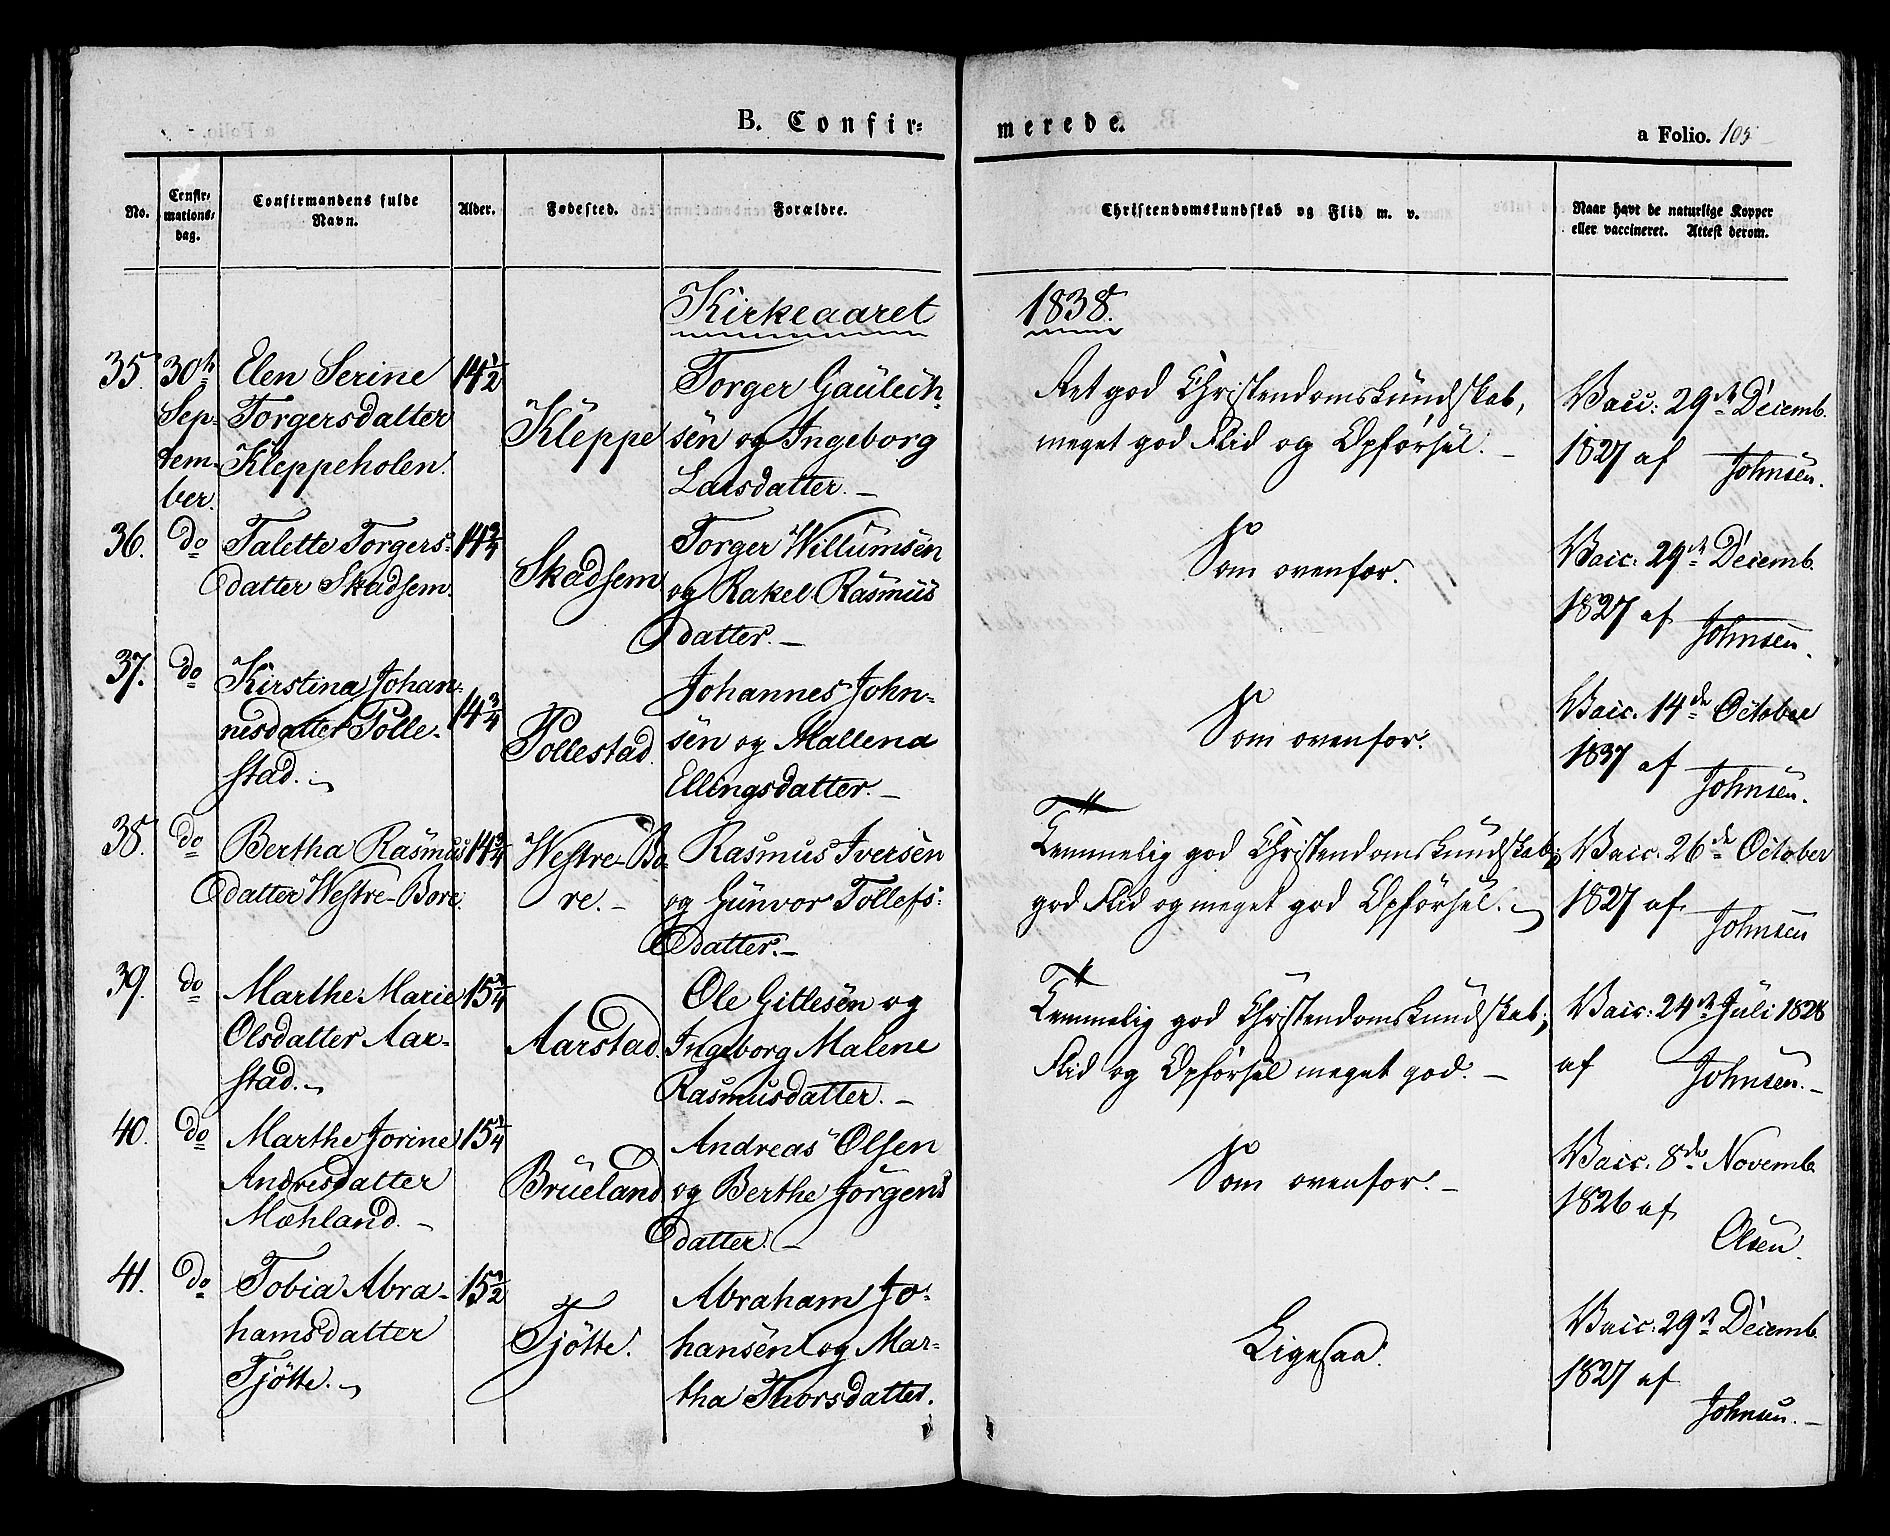 B. Confir=
merede.
a Folio. 105
No.
Confir=
mations=
dag.
Confirmandens fulde
Navn.
Alder.
Fødested.
Forældre.
Christendomskundskab og Flid m. v.
Naar havt de naturlige Kopper
eller vaccineret. Attest derom.
Kirkeaaret
1838.
35.
30te
Sep-
tem-
ber.
Elen Serine
Torgersdatter
Kleppeholen.
14 1/2
Kleppe
Torger Gaulech-
sen og Ingeborg
Larsdatter. –
Ret god Christendomskundskab,
meget god Flid og Opførsel. –
Vacc: 29de Decemb.
1827 af
Johnsen.
36.
do
Talette Torgers-
datter Skadsem.
14 3/4
Skadsem
Torger Willumsen
og Rakel Rasmus
datter. –
Som ovenfor.
Vacc: 29de Decemb.
1827 af
Johnsen.
37.
do
Kirstina Johan-
nesdatter Polle-
stad. –
14 3/4
Pollestad.
Johannes John-
sen og Mallena
Ellingsdatter. –
Som ovenfor.
Vacc. 14de October
1837 af
Johnsen.
38.
do
Bertha Rasmus
datter Westre-Bore.
14 3/4
Westre-Bo-
re. –
Rasmus Iversen
og Gunvor Tollefs-
datter. –
Temmelig god Christendomskundskab;
god Flid og meget god Opførsel. –
Vacc. 26de October
1827 af
Johnsen
39.
do
Marthe Marie
Olsdatter Aar-
stad. –
15 3/4
Aarstad.
Ole Gitlesen og
Ingeborg Malene
Rasmusdatter. –
Temmelig god Christendomskundskab;
Flid og Opførsel meget god. –
Vacc: 24de Juli 1828
af
Johnsen. –
40.
do
Marthe Jorine
Andresdatter
Mæhland. –
15 1/4
Brueland
Andreas Olsen
og Berthe Jørgens
datter. –
Som ovenfor. –
Vacc. 8de Novemb.
1826 af
Olsen.
41.
do
Tobia Abra-
hamsdatter
Tjøtte. –
15 1/2
Tjøtte.
Abraham Jo-
hansen og Mar-
tha Thorsdatter.
Ligesaa.
Vacc: 29de Decemb.
1827 af
Johnsen. –